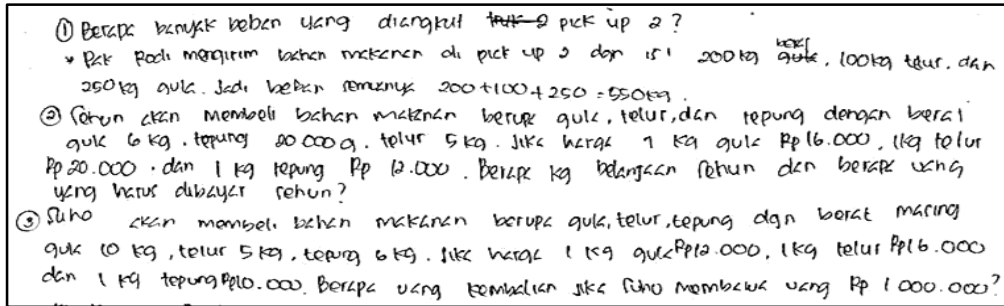 ① Berapa banyak beban yang diangkut pick up 2?
* Pak Rodi mengirim bahan makanan di pick up 2 dgn isi 200 kg beras, 100 kg telur, dan
250 kg gula. Jadi beban semuanya 200 + 100 + 250 = 550 kg.
② Sehun akan membeli bahan makanan berupa gula, telur, dan tepung dengan berat
gula 6 kg, tepung 20 000 g, telur 5 kg. Jika harga 1 kg gula Rp 16.000, 1 kg telur
Rp 20.000. dan 1 kg tepung Rp 12.000. Berapa kg belanjaan Sehun dan berapa uang
yang harus dibayar sehun?
③ Suho akan membeli bahan makanan berupa gula, telur, tepung dgn berat masing
gula 10 kg, telur 5 kg, tepung 6 kg. Jika harga 1 kg gula Rp 12.000, 1 kg telur Rp 16.000
dan 1 kg tepung Rp 10.000. Berapa uang kembalian jika Suho membawa uang Rp 1 000.000?